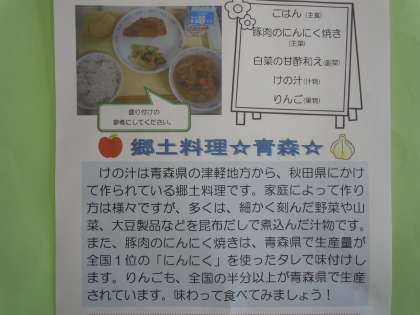 ごはん(主食)
豚肉のにんにく焼き
(主菜)
白菜の甘酢和え(副菜)
けの汁(汁物)
りんご(果物)
盛り付けの
参考にしてください。
郷土料理☆青森☆
けの汁は青森県の津軽地方から、秋田県にかけ
て作られている郷土料理です。家庭によって作り
方は様々ですが、多くは、細かく刻んだ野菜や山
菜、大豆製品などを昆布だしで煮込んだ汁物です。
また、豚肉のにんにく焼きは、青森県で生産量が
全国1位の「にんにく」を使ったタレで味付けしま
す。りんごも、全国の半分以上が青森県で生産
されています。味わって食べてみましょう!